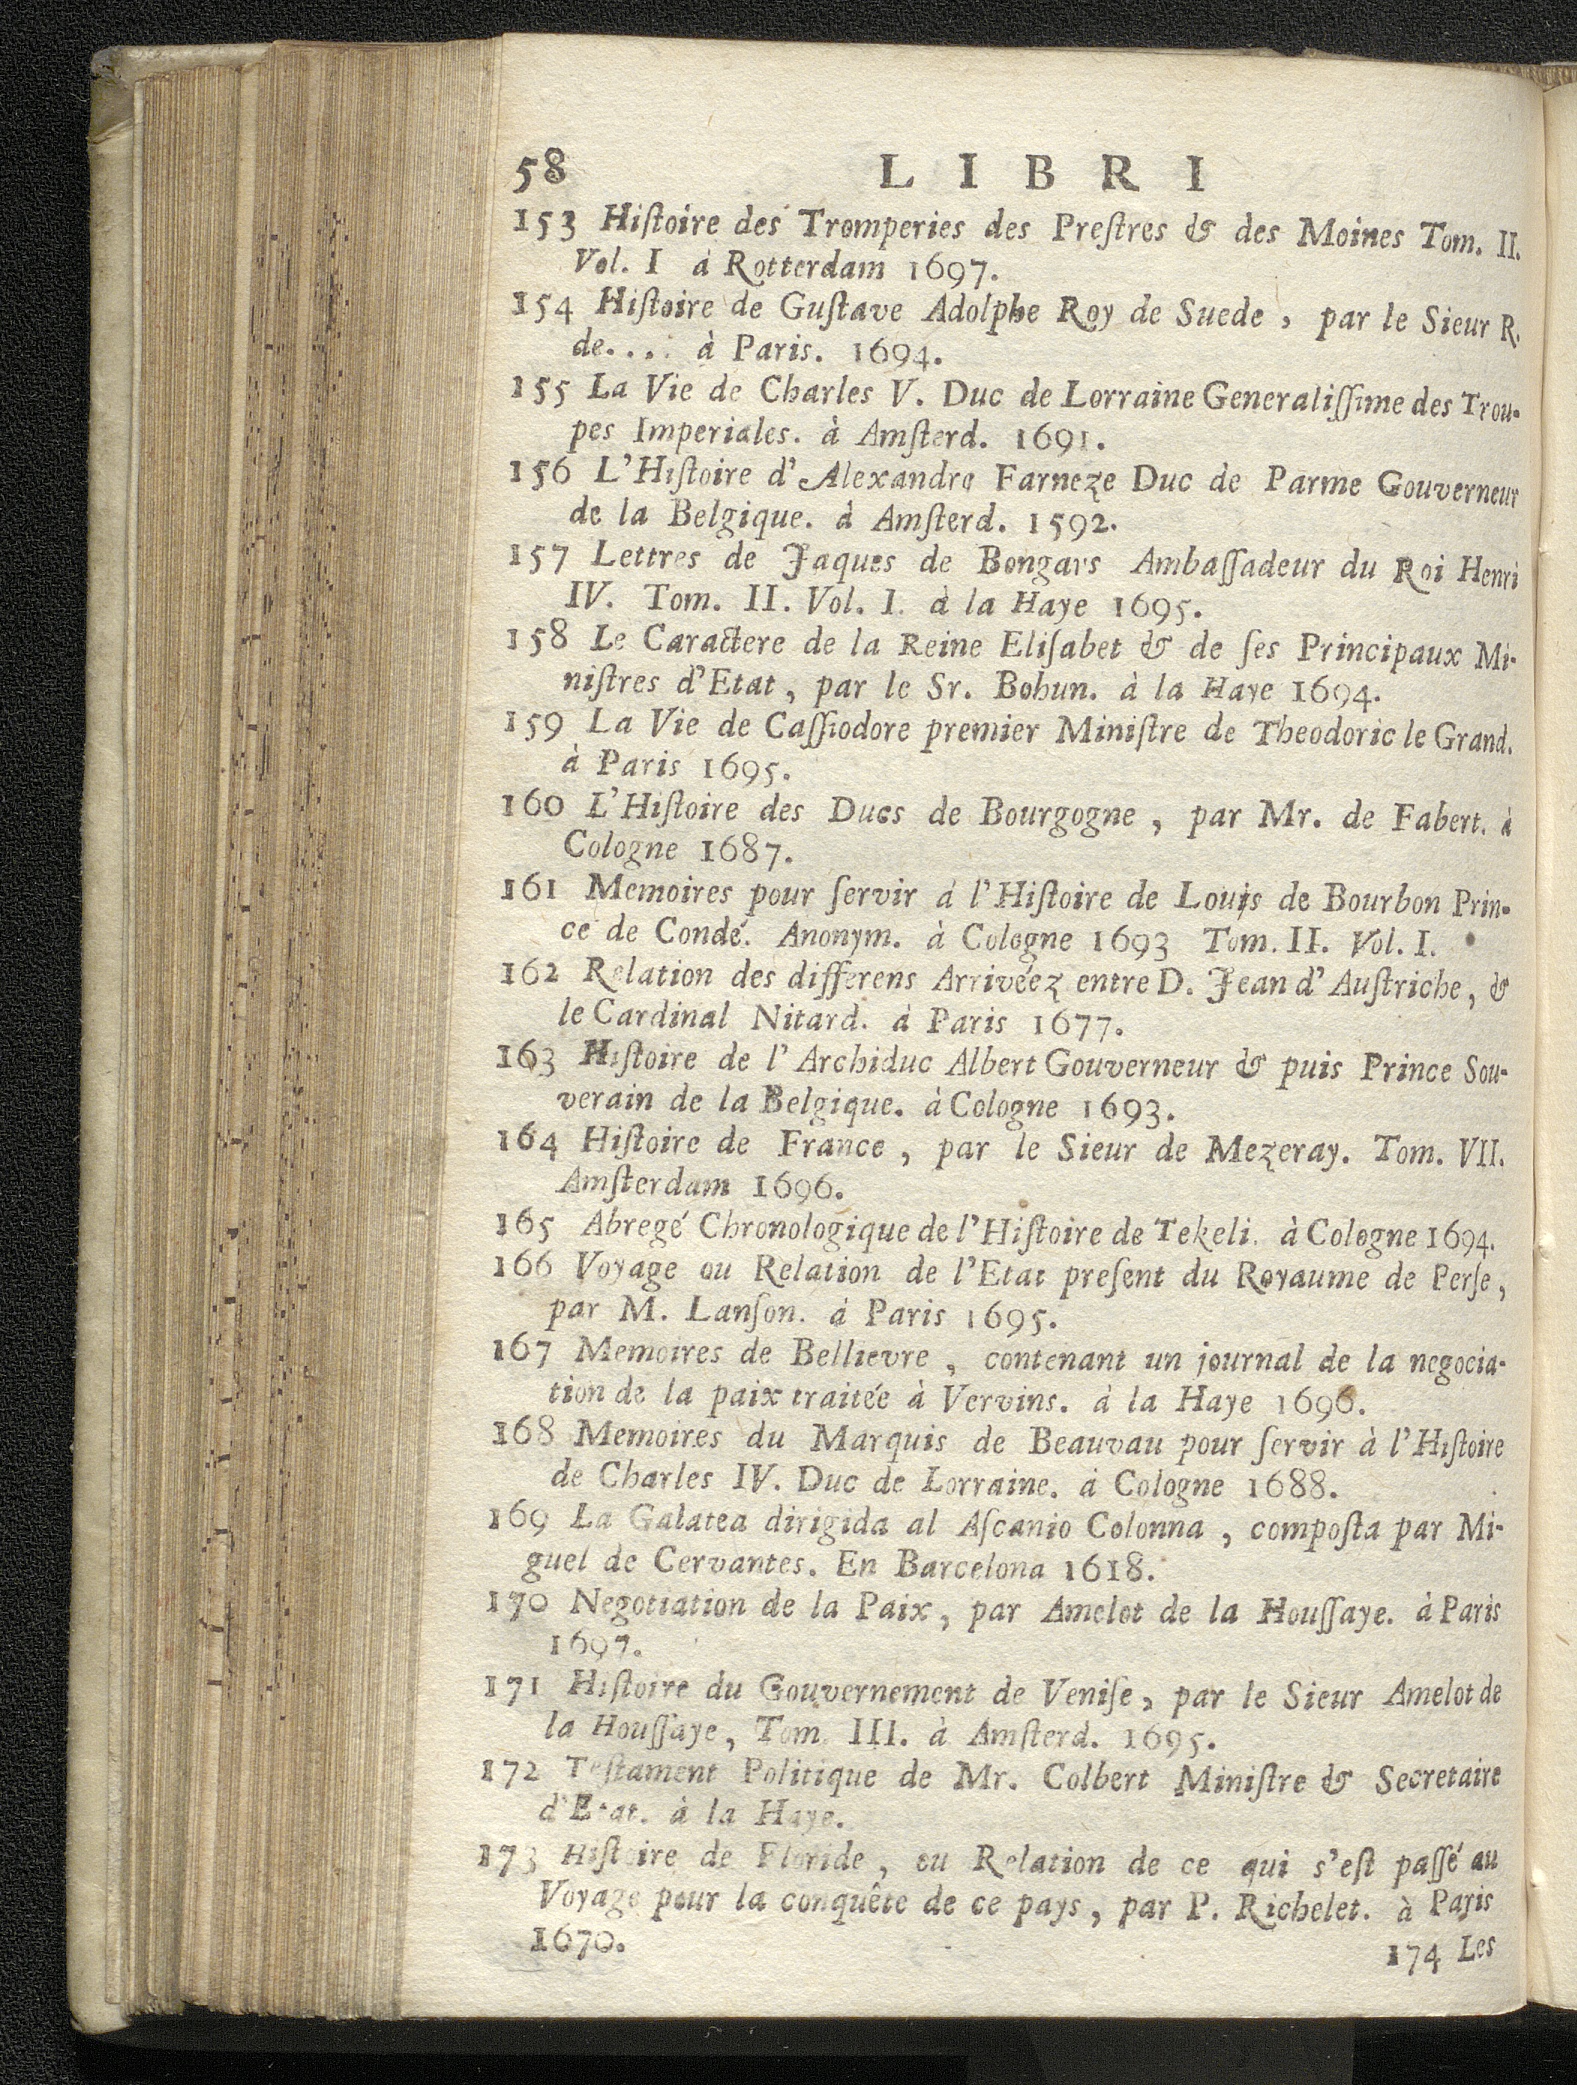 58 LIBRI
153 Hiſtoire des Tromperies des Preſtres & des Moines Tom. II.
Vol. I à Rotterdam 1697.
154 Hiſtoire de Guſtave Adolphe Roy de Suede, par le Sieur R.
de.... à Paris. 1694.
155 La Vie de Charles V. Duc de Lorraine Generaliſſime des Trou-
pes Imperiales. à Amſterd. 1691.
156 L'Hiſtoire d'Alexandre Farneze Duc de Parme Gouverneur
de la Belgique. à Amſterd. 1592.
157 Lettres de Jaques de Bongars Ambaſſadeur du Roi Henri
IV. Tom. II. Vol. I. à la Haye 1695.
158 Le Caractere de la Reine Eliſabet & de ſes Principaux Mi-
niſtres d'Etat, par le Sr. Bohun. à la Haye 1694.
159 La Vie de Caſſiodore premier Miniſtre de Theodoric le Grand.
à Paris 1695.
160 L'Hiſtoire des Ducs de Bourgogne, par Mr. de Fabert. à
Cologne 1687.
161 Memoires pour ſervir à l'Hiſtoire de Louis de Bourbon Prin-
ce de Condé. Anonym. à Cologne 1693 Tom. II. Vol. I.
162 Relation des differens Arrivéez entre D. Jean d'Auſtriche, &
le Cardinal Nitard. à Paris 1677.
163 Hiſtoire de l'Archiduc Albert Gouverneur & puis Prince Sou-
verain de la Belgique. à Cologne 1693.
164 Hiſtoire de France, par le Sieur de Mezeray. Tom. VII.
Amſterdam 1696.
165 Abregé Chronologique de l'Hiſtoire de Tekeli. à Cologne 1694.
166 Voyage ou Relation de l'Etat preſent du Royaume de Perſe,
par M. Lanſon. à Paris 1695.
167 Memoires de Bellievre, contenant un journal de la negocia-
tion de la paix traitée à Vervins. à la Haye 1696.
168 Memoires du Marquis de Beauvau pour ſervir à l'Hiſtoire
de Charles IV. Duc de Lorraine. à Cologne 1688.
169 La Galatea dirigida al Aſcanio Colonna, compoſta par Mi-
guel de Cervantes. En Barcelona 1618.
170 Negotiation de la Paix, par Amelot de la Houſſaye. à Paris
1697.
171 Hiſtoire du Gouvernement de Veniſe, par le Sieur Amelot de
la Houſſaye, Tom. III. à Amſterd. 1695.
172 Teſtament Politique de Mr. Colbert Miniſtre & Secretaire
d'Etat. à la Haye.
173 Hiſtoire de Floride, ou Relation de ce qui s'eſt paſſé au
Voyage pour la conquête de ce pays, par P. Richelet. à Paris
1670.
174 Les